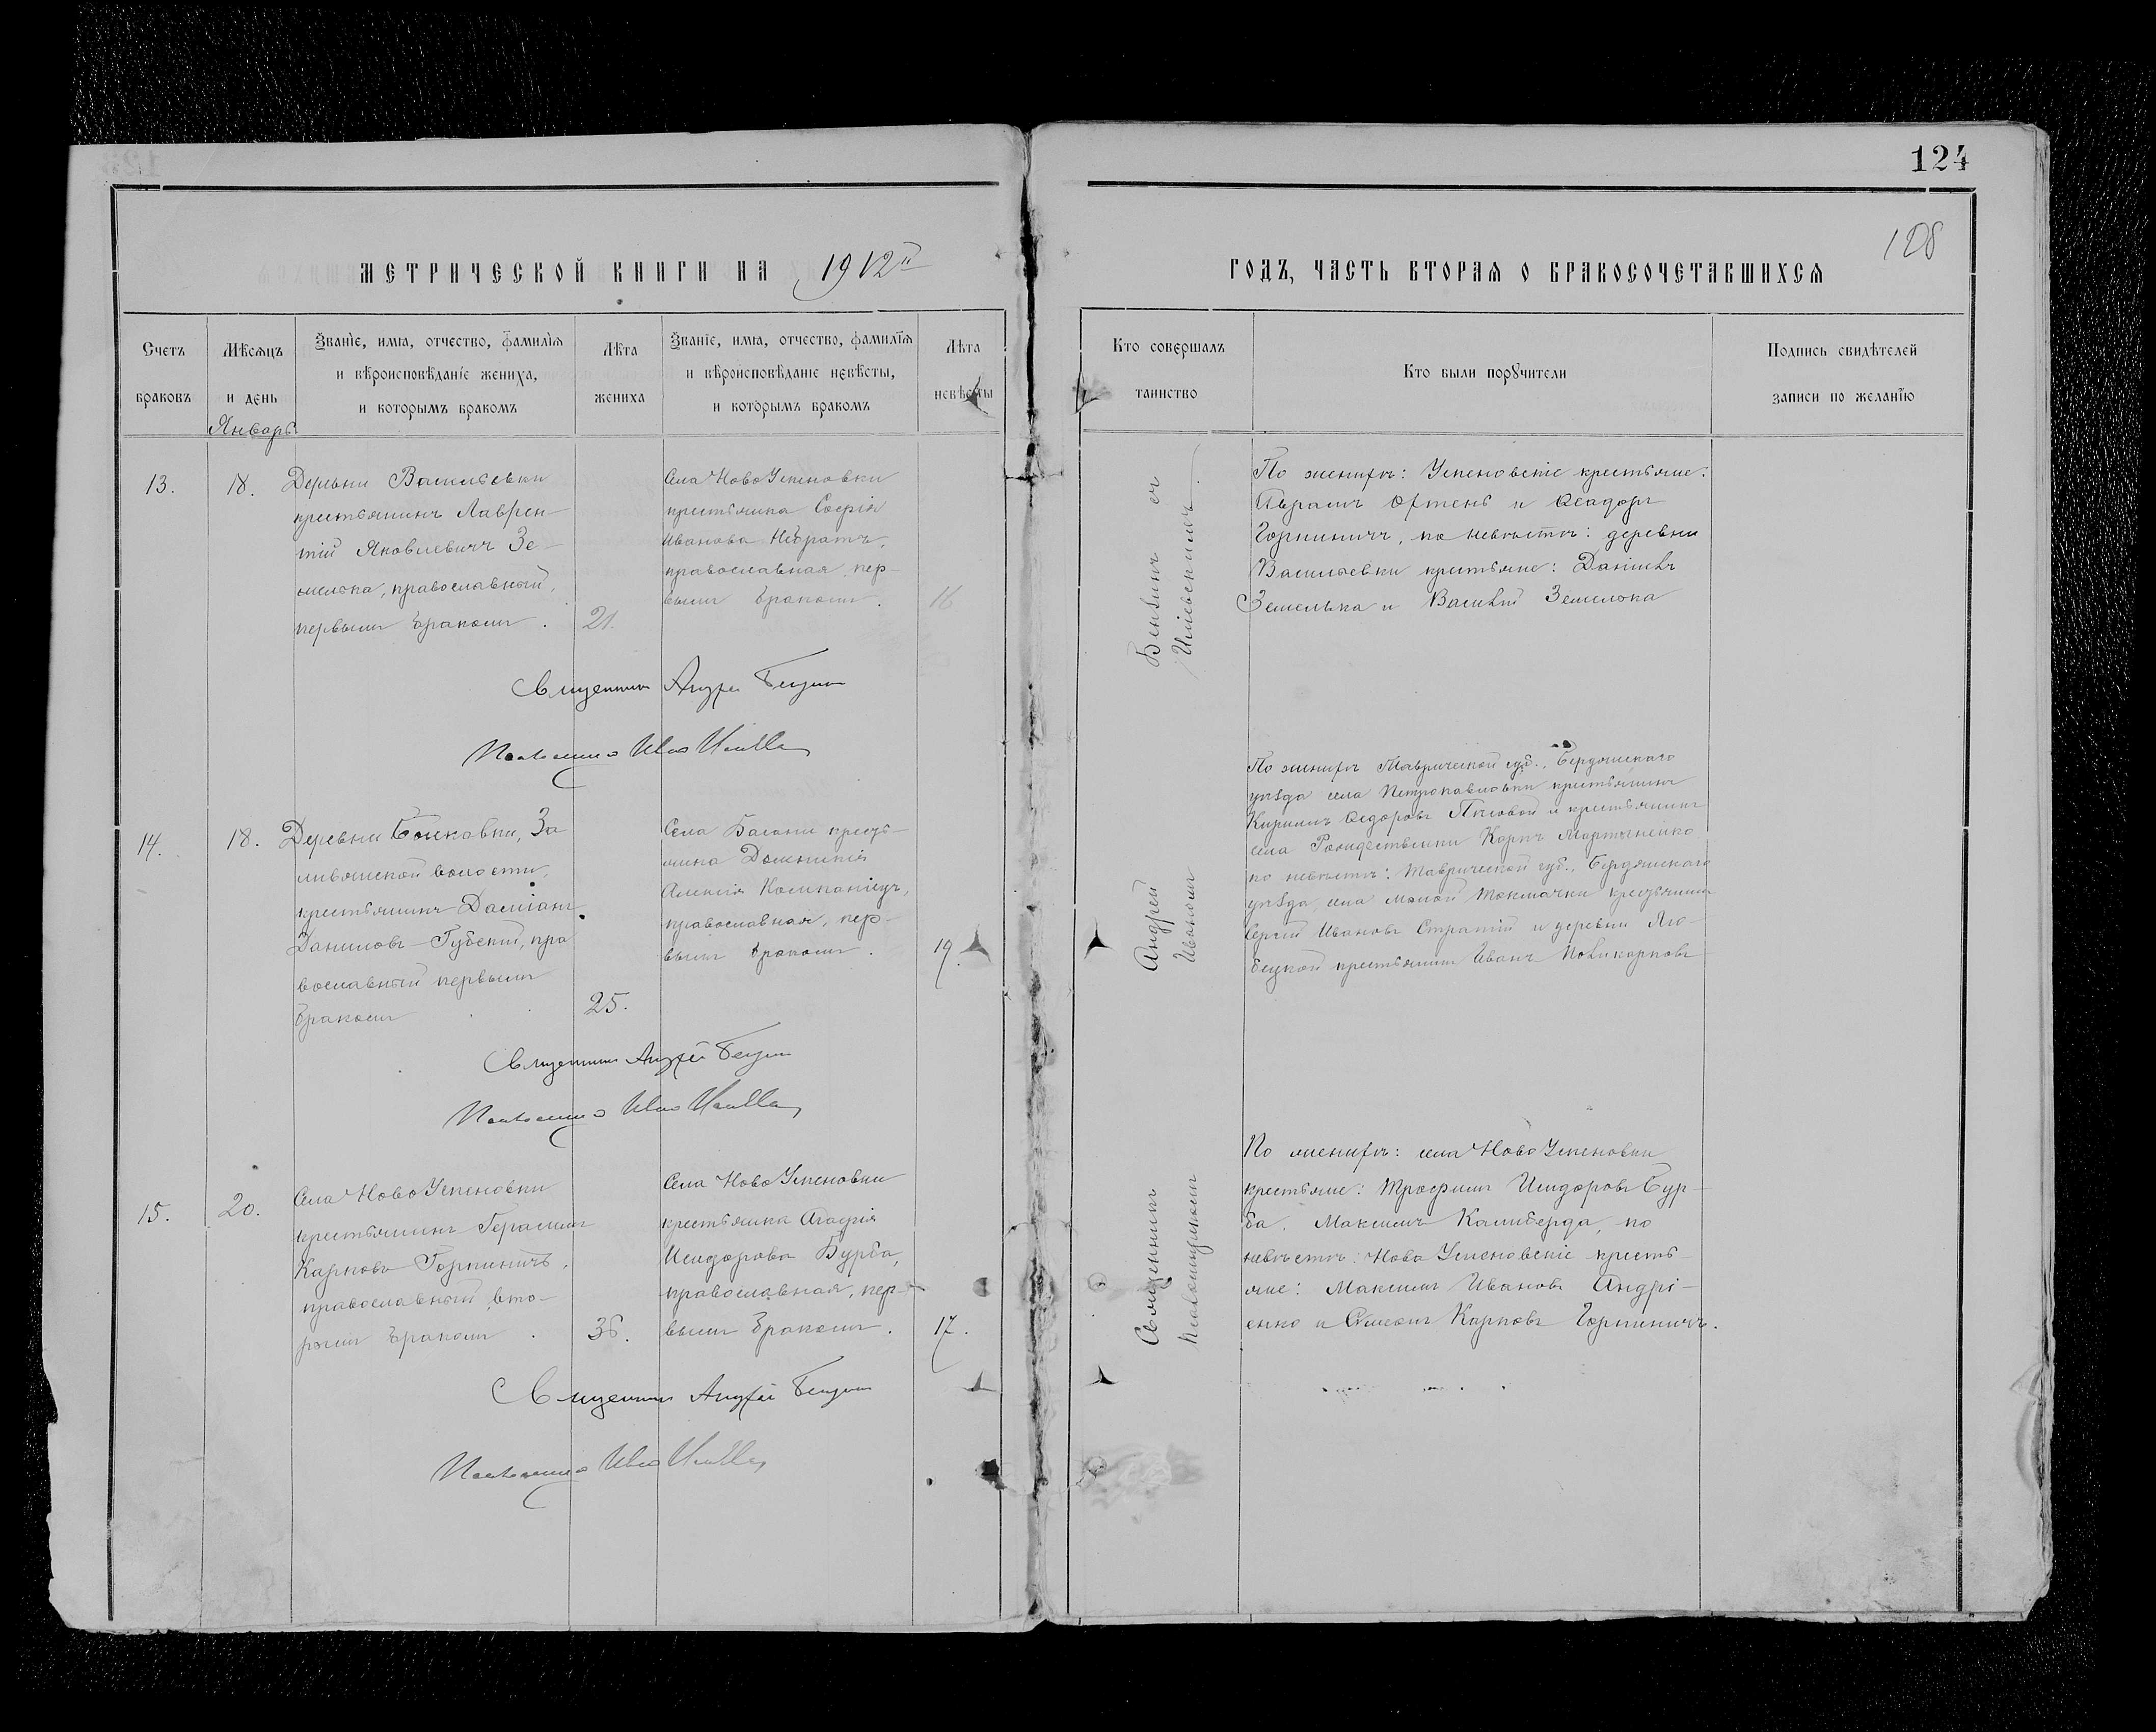 124
108
МЕТРИЧЕСКОЙ КНИГИ НА 1912й
ГОДЪ, ЧАСТЬ ВТОРАЯ О БРАКОСОЧЕТАВШИХСЯ
Счетъ
браковъ
Мѣсяцъ
и день
Январь
Званіе, имя, отчество, фамилія
и вѣроисповѣданіе жениха,
и которымъ бракомъ
Лѣта
жениха
Званіе, имя, отчество, фамилія
и вѣроисповѣданіе невѣсты,
и которымъ бракомъ
Лѣта
невѣсты
Кто совершалъ
таинство
Кто были поручители
Подпись свидѣтелей
записи по желанію
13.
18.
Деревни Васильевки
крестьянинъ Лаврен-
тій Яковлевичъ Зе-
мелька, православный,
первымъ бракомъ.
21.
Села НовоУспеновки
крестьянка Софія
Иванова
православная, пер-
вымъ бракомъ.
16
По женихѣ: Успеновскіе крестьяне:
Абрамъ и Ѳеодоръ
Горпиничъ, по невѣстѣ: деревни
Васильевки крестьяне: Даніилъ
Земелька и Василій Земелька
Священникъ Андрей
Псаломщикъ
14.
18.
Деревни За
ливянской волости,
крестьянинъ Даміанъ
Даниловъ Губскій, пра
вославный первымъ
бракомъ
25.
Села крестья-
нка Домникія
Алексія Компаніецъ,
православная, пер-
вымъ бракомъ.
19.
Андрей
По женихѣ Таврической губ., Бердянскаго
уѣзда села Петропавловки крестьянинъ
Кириллъ Ѳедоровъ и крестьянинъ
села Рождественки Карпъ Мартыненко
по невѣстѣ: Таврической губ., Бердянскаго
уѣзда, села Малой Токмачки крестьянинъ
Сергій Ивановъ и деревни
крестьянинъ Иванъ Поликарповъ
Священникъ Андрей
Псаломщикъ
15.
20.
Села НовоУспеновки
крестьянинъ Герасимъ
Карповъ Горпиничъ,
православный, вто-
рымъ бракомъ.
36.
Села НовоУспеновки
крестьянка Агафія
Исидорова Бурба,
православная, пер-
вымъ бракомъ.
17.
Священникъ
Псаломщикомъ
По женихѣ: села НовоУспеновки
крестьяне: Трофимъ Исидоровъ Бур-
ба, Максимъ Калиберда, по
невѣстѣ: НовоУспеновскіе кресть-
яне: Максимъ Ивановъ Андрі-
енко и Симеонъ Карповъ Горпиничъ.
Священникъ Андрей
Псаломщикъ